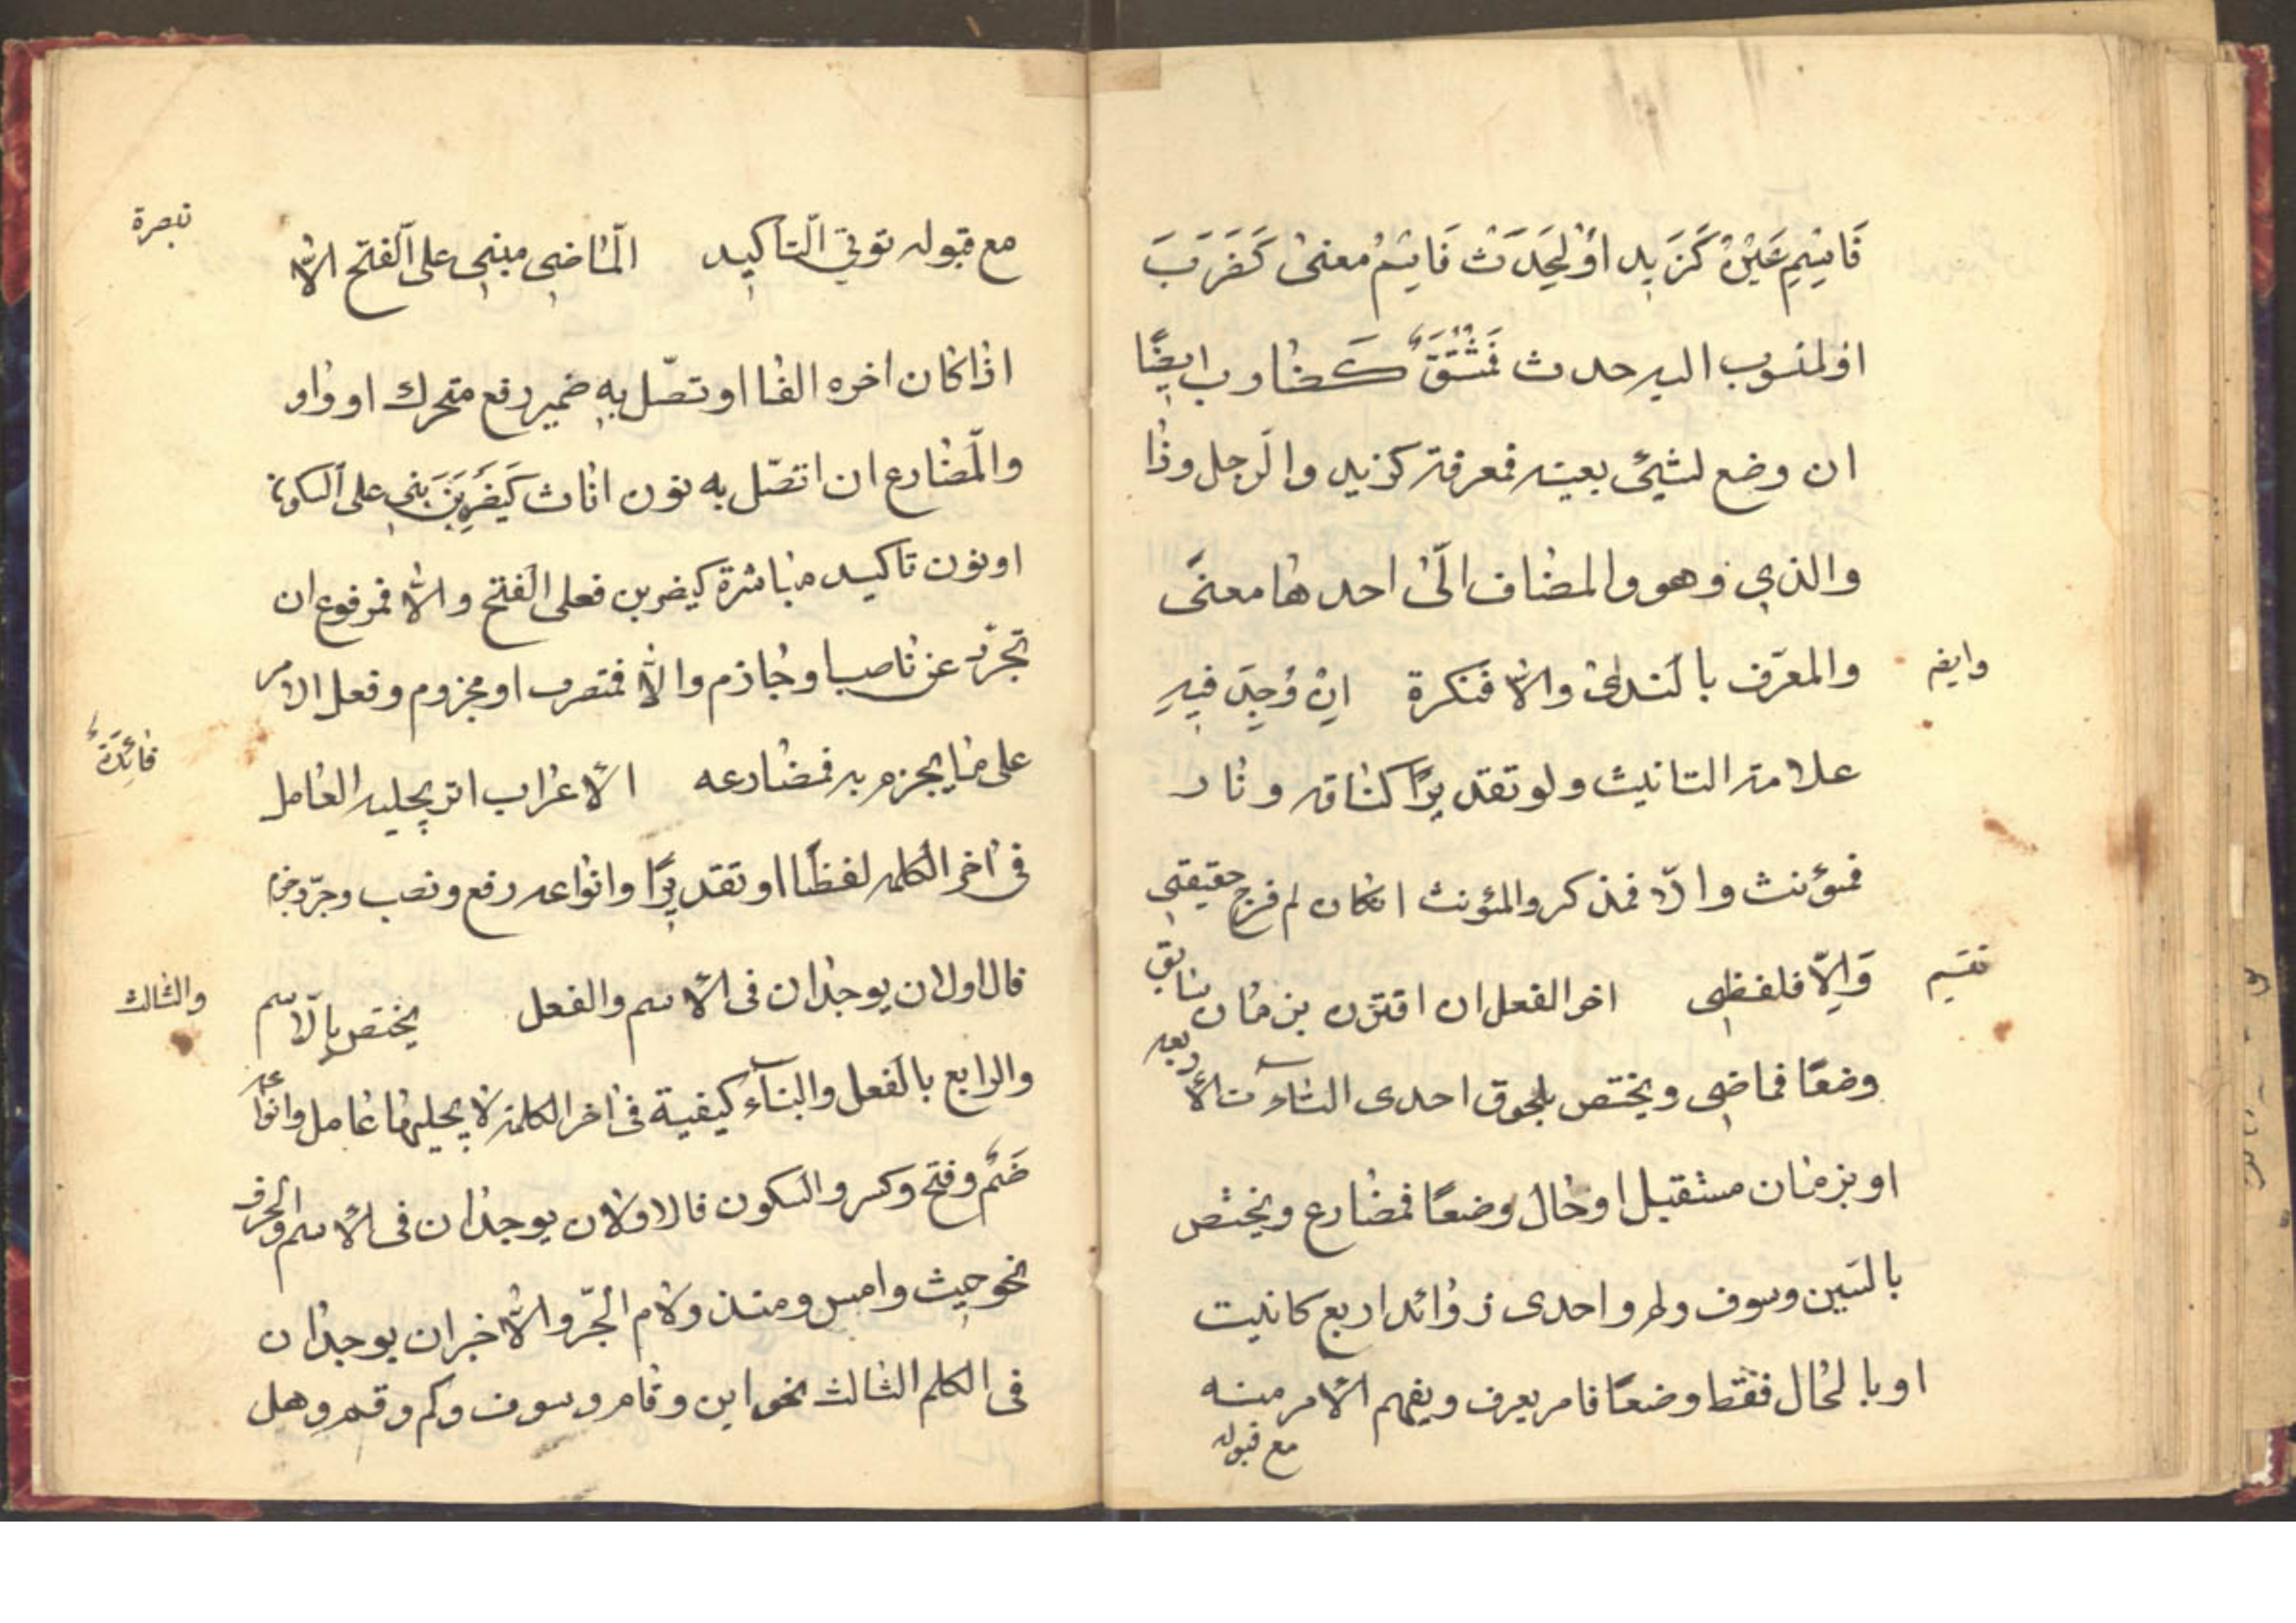 فَاسِمِ عَيْنٌ كَزَيدٍ اَوْ لِحَدَثْ فَاسْمُ مُعنىٰ كَضَرَبَ
اولمنسوب اليه حدث فَمُشْتَقٌّ كَضٰارب ايضًا
ان وضع لشيئ بعينه فمعرفة كزيد والرّجل وذٰا
والذي وهو والمضٰاف الىٰ احدهٰا معنىً
وايضه
والمعرّف بالنّدٰىٰ والاّ فنكرة اِنْ وُجِدَ فيهِ
علامة التانيث ولو تقديرًا كنٰاقه ونٰار
فمؤنث والاّ فمذكر والمؤنث انكان له فرج حقيقي
تقسيم
وَاِلاّ فلفظي اخر الفعل ان اقترن بزمٰان سٰابق
وضعًا فماضي ويختص بلحوق احدى التاءٓات الأربعه
او بزمٰان مستقبل او حٰال وضعًا فمضٰارع ويختص
بالسّين وسوف ولم واحدى زوٰائد اربع كانيت
او بالحٰال فقط وضعًا فامر يعرف ويفهم الأمر منه
مع قبوله
تبصرة
مع قبوله نوني التّاكيد المٰاضي مبني على الفتح الاّ
اذٰا كٰان اخره الفٰا او تصّل بهِ ضمير رفع متحرك او وٰاو
والمضٰارع ان اتصّل به نون اناث كَيَضْرِبْنَ بني على السكون
او نون تاكيد مبٰاشرة كيضربن فعلى الفتح والاّ فمرفوع ان
تجرّد عن نٰاصب او جٰازم والاّ فمنصوب او مجزوم وفعل الامر
فٰائِدَةٌ
على مٰا يجزم به مضٰارعه الأعرٰاب اثر يجلبه العٰامل
فى اٰخر الكلمه لفظًا او تقديرًا وانوٰاعه رفع ونصب وجرّ وجزم
والثالث
فالاولان يوجدٰان فى الأسم والفعل يختص بالاّسم
والرابع بالفعل والبنٓاء كيفية فى اٰخر الكلمة لٰا يجلبهٰا عٰامل وانوٰاعه
ضَمٌّ وفتح وكسر والسكون فالاولان يوجدٰان فى الأسم والحرف
نحو حيث وامس ومنذ ولٰام الجّر والأخيران يوجدٰان
فى الكلم الثالث نحو اين وقٰام وسوف وكم وقم وهل